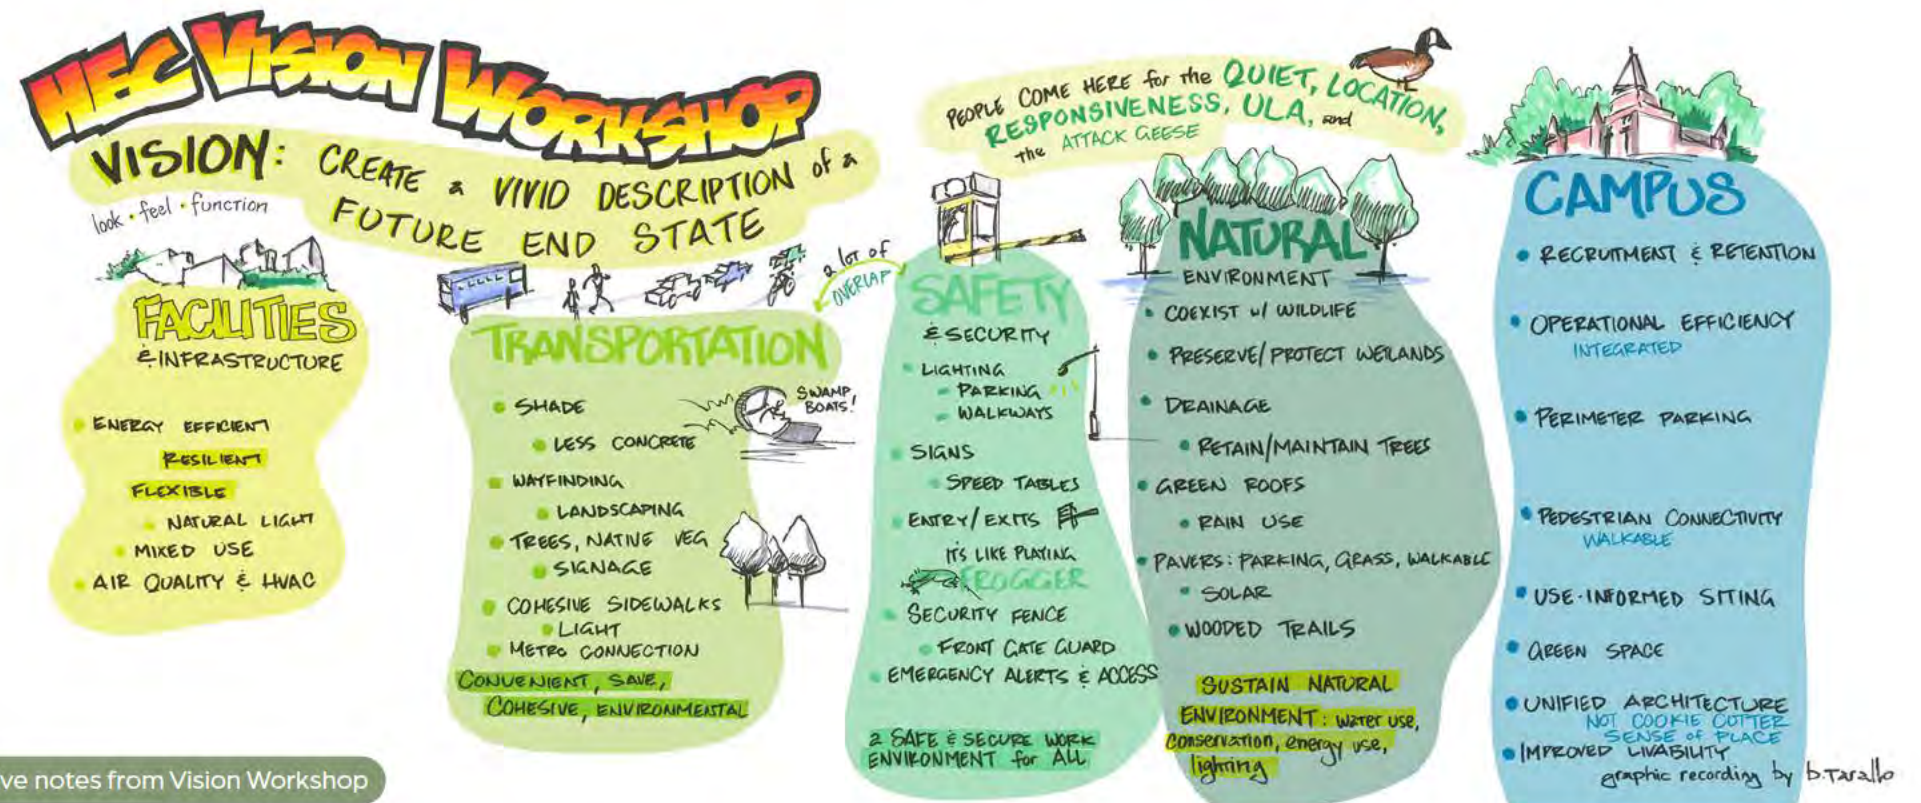 HEC VISION WORKSHOP
VISION: CREATE a VIVID DESCRIPTION of a
FUTURE END STATE
look • feel • function
PEOPLE COME HERE for the QUIET, LOCATION,
RESPONSIVENESS, ULA, and
the ATTACK GEESE
FACILITIES
& INFRASTRUCTURE
ENERGY EFFICIENT
RESILIENT
FLEXIBLE
NATURAL LIGHT
MIXED USE
AIR QUALITY & HVAC
TRANSPORTATION
SHADE
LESS CONCRETE
WAYFINDING
LANDSCAPING
TREES, NATIVE VEG
SIGNAGE
COHESIVE SIDEWALKS
LIGHT
METRO CONNECTION
CONVENIENT, SAVE,
COHESIVE, ENVIRONMENTAL
SWAMP
BOATS!
a lot of
OVERLAP
SAFETY
& SECURITY
LIGHTING
PARKING
WALKWAYS
SIGNS
SPEED TABLES
ENTRY/EXITS
IT'S LIKE PLAYING
FROGGER
SECURITY FENCE
FRONT GATE GUARD
EMERGENCY ALERTS & ACCESS
a SAFE & SECURE WORK
ENVIRONMENT for ALL
NATURAL
ENVIRONMENT
COEXIST w/ WILDLIFE
PRESERVE/PROTECT WETLANDS
DRAINAGE
RETAIN/MAINTAIN TREES
GREEN ROOFS
RAIN USE
PAVERS: PARKING, GRASS, WALKABLE
SOLAR
WOODED TRAILS
SUSTAIN NATURAL
ENVIRONMENT: water use,
conservation, energy use,
lighting
CAMPUS
RECRUITMENT & RETENTION
OPERATIONAL EFFICIENCY
INTEGRATED
PERIMETER PARKING
PEDESTRIAN CONNECTIVITY
WALKABLE
USE-INFORMED SITING
GREEN SPACE
UNIFIED ARCHITECTURE
NOT COOKIE CUTTER
SENSE OF PLACE
IMPROVED LIVABILITY
graphic recording by b.Tarallo
ve notes from Vision Workshop